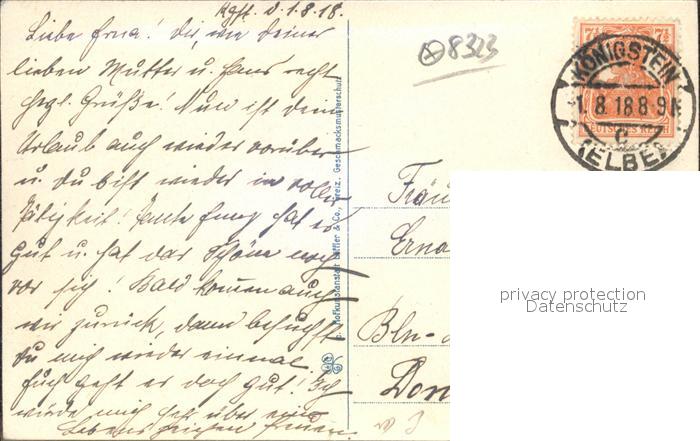 Kgst. d. 1.8.18.
Liebe Erna! Dir, wie Deiner
lieben Mutter u. Hans recht
herzl. Grüße! Nun ist Dein
Urlaub auch wieder vorüber
u. Du bist wieder in voller
Tätigkeit! Tante hat es
gut u. hat das Schöne noch
vor sich! Bald kommen auch
wir zurück, dann besuchst
Du mich wieder einmal.
Euch geht es doch gut! Ich
würde mich sehr über ein
Lebenszeichen freuen.
Hofkunstanstalt Löffler & Co., Greiz. Geschmacksmusterschutz
8323
7½ 7½
DEUTSCHES REICH
KÖNIGSTEIN
-1.8.18 8-9N
(ELBE)
Fräu
Erna
Bln-
Don
privacy protection
Datenschutz